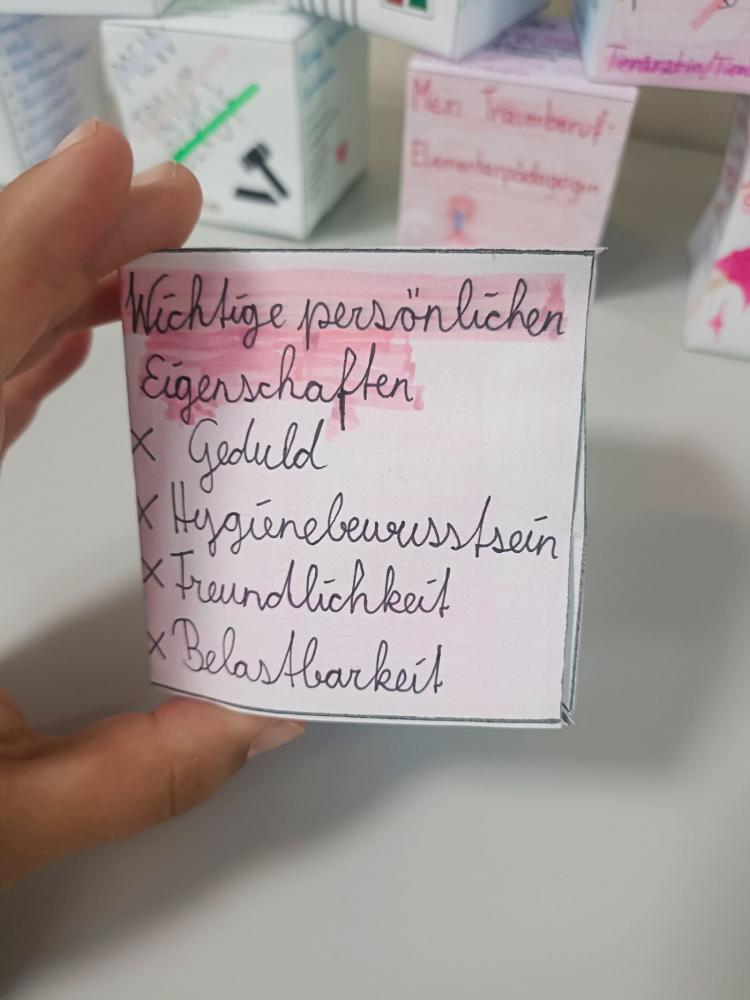 Tierärztin/Tier
Mein Traumberuf:
Elementarpädagogin
MEIN
Wichtige persönlichen
Eigenschaften
x Geduld
x Hygienebewusstsein
x Freundlichkeit
x Belastbarkeit